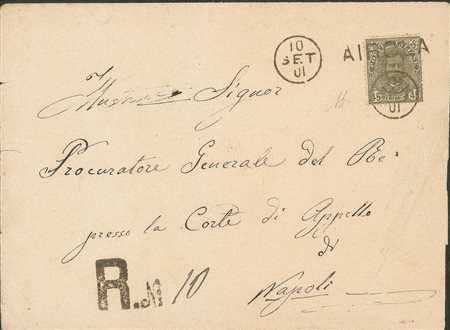 10
SET
01
01
Illustrissimo Signor
Procuratore Generale del Re
presso la Corte di Appello
di
Napoli
R. N 10